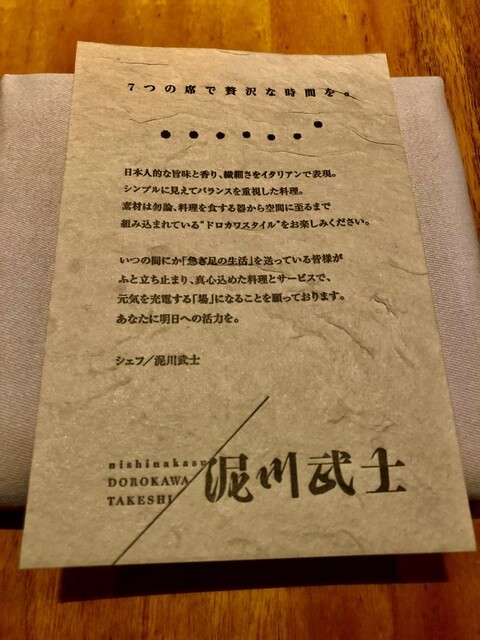 7つの席で贅沢な時間を。
日本人的な旨味と香り、繊細さをイタリアンで表現。
シンプルに見えてバランスを重視した料理。
素材は勿論、料理を食する器から空間に至るまで
組み込まれている"ドロカワスタイル"をお楽しみください。
いつの間にか「急ぎ足の生活」を送っている皆様が
ふと立ち止まり、真心込めた料理とサービスで、
元気を充電する「場」になることを願っております。
あなたに明日への活力を。
シェフ/泥川武士
nishinakasu
DOROKAWA
TAKESHI
泥川武士